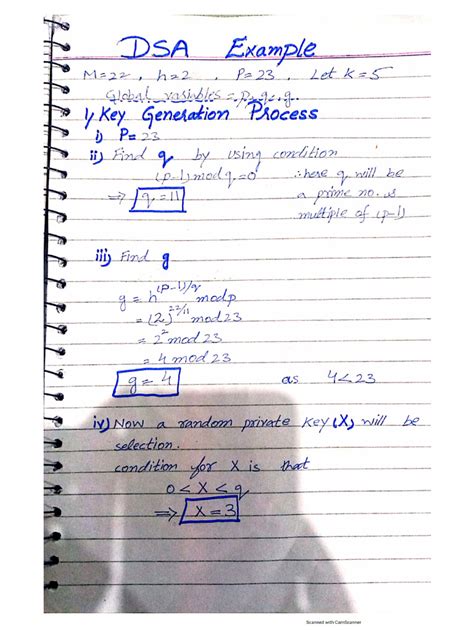 DSA Example
M=22, h=2, P=23, Let K=5
Global variables = p, q, g.
1) Key Generation Process
i) P= 23
ii) Find q by using condition
(P-1) mod q = 0 ∴ here q will be
⇒ q = 11 a prime no. &
multiple of (p-1)
iii) Find g
g = h^(P-1)/q mod p
= (2)^22/11 mod 23
= 2^2 mod 23
= 4 mod 23
g = 4 as 4<23
iv) Now a random private key (X) will be
selection.
condition for X is that
0 < X < q
⇒ X = 3
Scanned with CamScanner